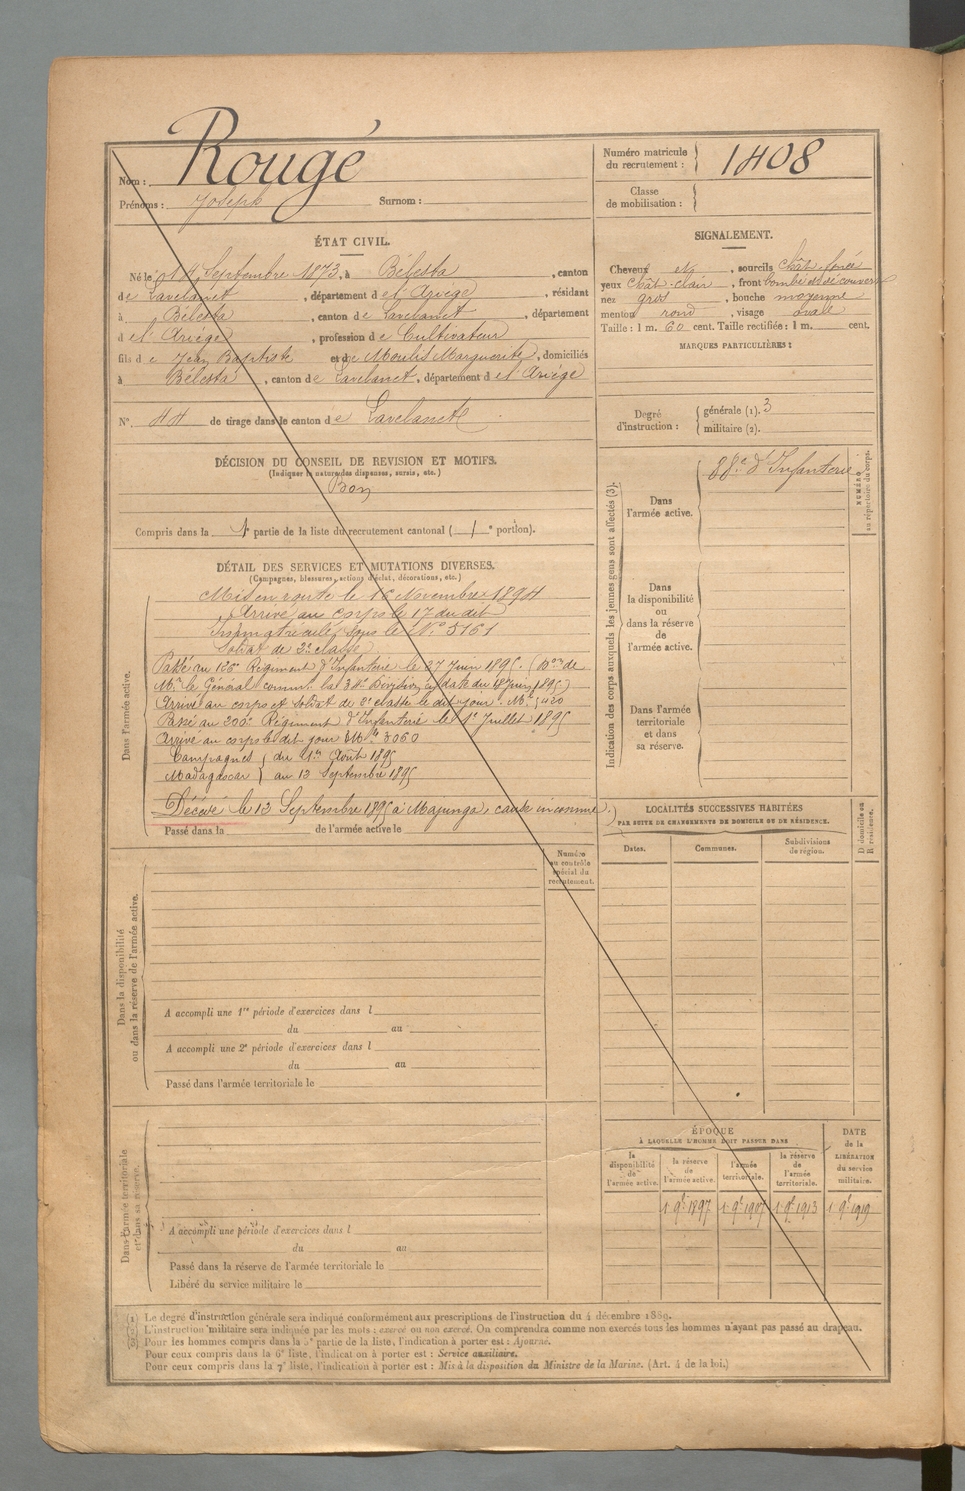 Nom : Rougé
Prénoms : Joseph Surnom :
ÉTAT CIVIL.
Né le 14 Septembre 1873, à Bélesta, canton
de Lavelanet, département de l'Ariège, résidant
à Bélesta, canton de Lavelanet, département
de l'Ariège, profession de Cultivateur
fils de Jean Baptiste et de Moulis Marguerite, domiciliés
à Bélesta, canton de Lavelanet, département de l'Ariège
N° 44 de tirage dans le canton de Lavelanet
DÉCISION DU CONSEIL DE REVISION ET MOTIFS.
(Indiquer la nature des dispenses, sursis, etc.)
Bon
Compris dans la 1e partie de la liste du recrutement cantonal ( 1 e portion).
DÉTAIL DES SERVICES ET MUTATIONS DIVERSES.
(Campagnes, blessures, actions d'éclat, décorations, etc.)
Dans l'armée active.
Mis en route le 16 Novembre 1894
Arrivé au corps le 17 du dit
Immatriculé sous le N° 5161
Soldat de 2e classe
Passé au 126e Régiment d'Infanterie le 27 Juin 1895. (Don de
Mr le Général comm. la 34e Division en date du 18 Juin 1895)
Arrivé au corps et soldat de 2e classe le dit jour. Mle 5420
Passé au 200e Régiment d'Infanterie le 1er Juillet 1895
Arrivé au corps le dit jour Mle 3060
Campagnes } du 1er Août 1895
Madagascar } au 13 Septembre 1895
Décédé le 13 Septembre 1895 à Majunga, cause inconnue.
Passé dans la de l'armée active le
Numéro
au contrôle
spécial du
recrutement.
Dans la disponibilité
ou dans la réserve de l'armée active.
A accompli une 1re période d'exercices dans l
du au
A accompli une 2e période d'exercices dans l
du au
Passé dans l'armée territoriale le
Dans l'armée territoriale
et dans sa réserve.
A accompli une période d'exercices dans l
du au
Passé dans la réserve de l'armée territoriale le
Libéré du service militaire le
Numéro matricule
du recrutement : } 1408
Classe
de mobilisation : }
SIGNALEMENT.
Cheveux et, sourcils chât-foncé
yeux chât-clair, front bombé et découvert
nez gros, bouche moyenne
menton rond, visage ovale
Taille : 1 m. 60 cent. Taille rectifiée : 1 m. cent.
MARQUES PARTICULIÈRES :
Degré
d'instruction : { générale (1). 3
militaire (2).
Indication des corps auxquels les jeunes gens sont affectés (3).
Dans
l'armée active.
88e d'Infanterie
NUMÉRO
au répertoire du corps.
Dans
la disponibilité
ou
dans la réserve
de
l'armée active.
Dans l'armée
territoriale
et dans
sa réserve.
LOCALITÉS SUCCESSIVES HABITÉES
PAR SUITE DE CHANGEMENTS DE DOMICILE OU DE RÉSIDENCE.
Dates. Communes. Subdivisions
de région.
D. domicile ou
R. résidence.
ÉPOQUE
À LAQUELLE L'HOMME DOIT PASSER DANS
la
disponibilité
de
l'armée active.
la réserve
de
l'armée active.
l'armée
territoriale.
la réserve
de
l'armée
territoriale.
DATE
de la
LIBÉRATION
du service
militaire.
1 9bre 1897 1 9bre 1907 1 9bre 1913 1 9bre 1919
(1) Le degré d'instruction générale sera indiqué conformément aux prescriptions de l'instruction du 4 décembre 1889.
(2) L'instruction militaire sera indiquée par les mots : exercé ou non exercé. On comprendra comme non exercés tous les hommes n'ayant pas passé au drapeau.
(3) Pour les hommes compris dans la 2e partie de la liste, l'indication à porter est : Ajourné.
Pour ceux compris dans la 6e liste, l'indication à porter est : Service auxiliaire.
Pour ceux compris dans la 7e liste, l'indication à porter est : Mis à la disposition du Ministre de la Marine. (Art. 4 de la loi.)